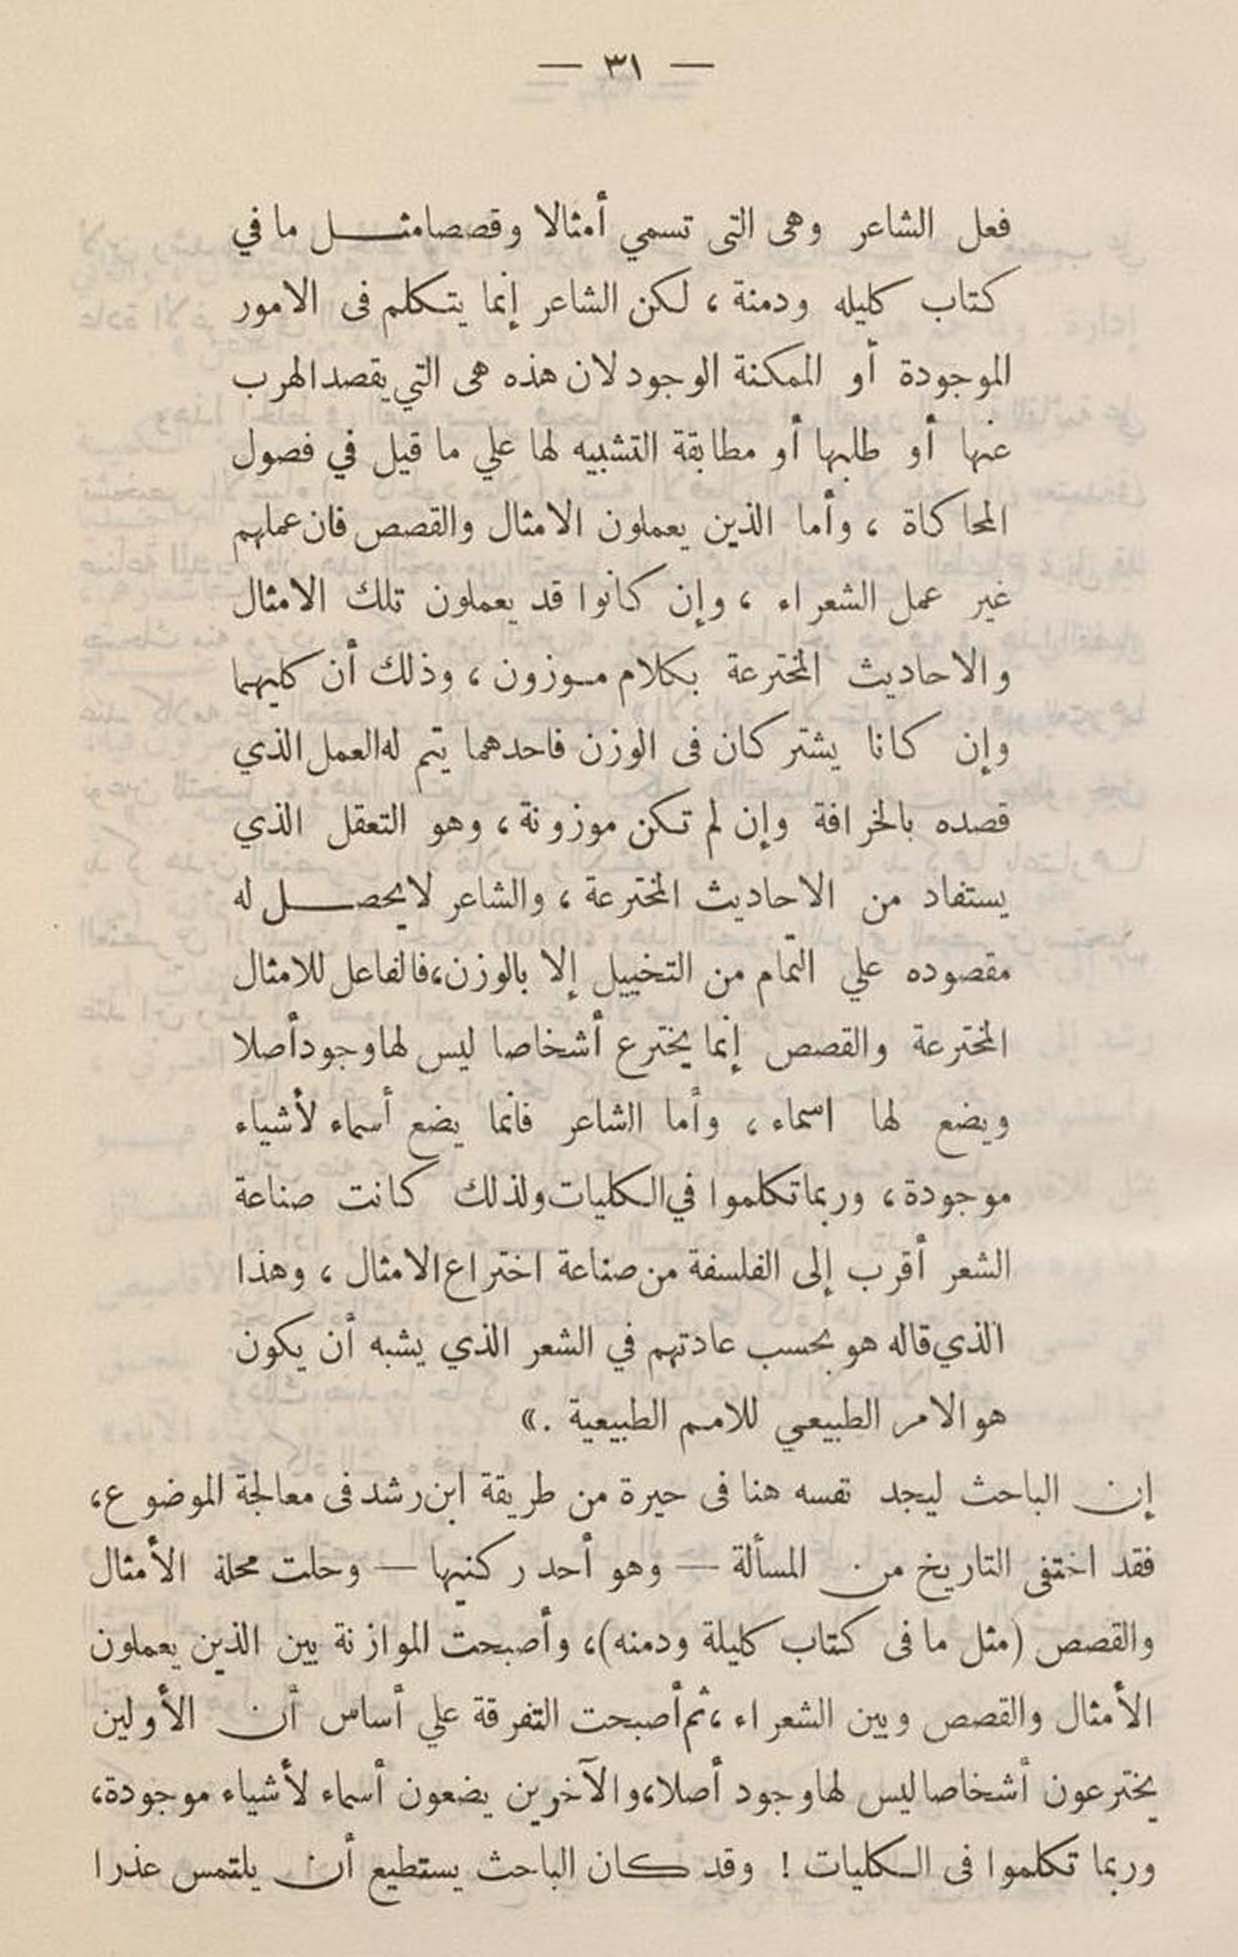 — ٣١ —
فعل الشاعر وهى التى تسمي أمثالا وقصصامثـــل ما في
كتاب كليله ودمنة ، لكن الشاعر إنما يتكلم فى الامور
الموجودة أو الممكنة الوجود لان هذه هى التي يقصد الهرب
عنها أو طلبها أو مطابقة التشبيه لها علي ما قيل في فصول
المحاكاة ، وأما الذين يعملون الامثال والقصص فان عملهم
غير عمل الشعراء ، وإن كانوا قد يعملون تلك الامثال
والاحاديث المخترعة بكلام موزون ، وذلك أن كليهما
وإن كانا يشتركان فى الوزن فاحدهما يتم له العمل الذي
قصده بالخرافة وإن لم تكن موزونة ، وهو التعقل الذي
يستفاد من الاحاديث المخترعة ، والشاعر لا يحصـــل له
مقصوده علي التمام من التخييل إلا بالوزن، فالفاعل للامثال
المخترعة والقصص إنما يخترع أشخاصا ليس لها وجود أصلا
ويضع لها اسماء ، وأما الشاعر فانما يضع أسماء لأشياء
موجودة ، وربما تكلموا في الكليات ولذلك كانت صناعة
الشعر أقرب إلى الفلسفة من صناعة اختراع الامثال ، وهذا
الذي قاله هو بحسب عادتهم في الشعر الذي يشبه أن يكون
هو الامر الطبيعي للامم الطبيعية . »
إن الباحث ليجد نفسه هنا فى حيرة من طريقة ابن رشد فى معالجة الموضوع ،
فقد اختفى التاريخ من المسألة — وهو أحد ركنيها — وحلت محلة الأمثال
والقصص (مثل ما فى كتاب كليلة ودمنه) ، وأصبحت الموازنة بين الذين يعملون
الأمثال والقصص وبين الشعراء ، ثم أصبحت التفرقة علي أساس أن الأولين
يخترعون أشخاصا ليس لها وجود أصلا ، والآخرين يضعون أسماء لأشياء موجودة ،
وربما تكلموا فى الكليات ! وقد كان الباحث يستطيع أن يلتمس عذرا